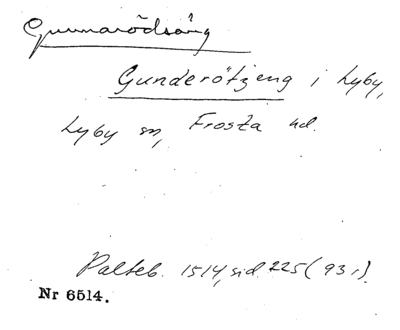 Gunnarödsäng
Gunderötzeng i Lyby,
Lyby sn, Frosta hd.
Palteb. 1514, sid. 225 (93 r).
Nr 6514.